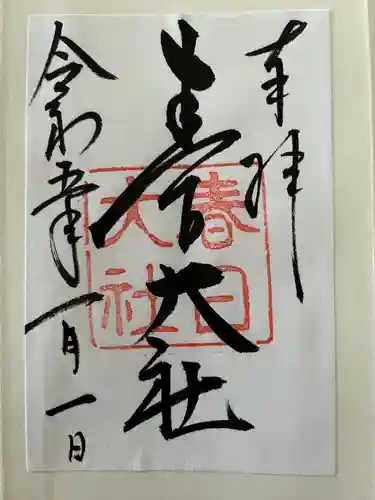 奉拝
春日大社
春日
大社
令和五年
一月一日